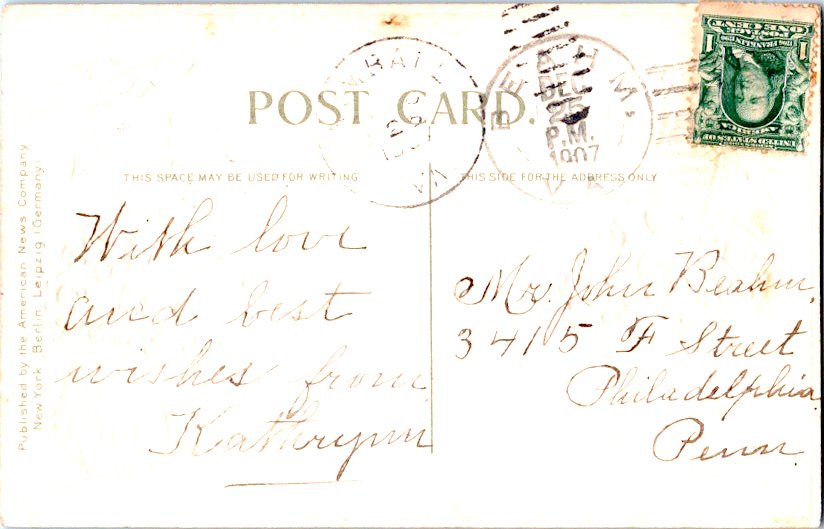 POST CARD.
THIS SPACE MAY BE USED FOR WRITING.
THIS SIDE FOR THE ADDRESS ONLY
BEAHM,
DEC
25
P.M.
1907
VA.
ONE CENT
POSTAGE
1 1
FRANKLIN
AMERICA
UNITED STATES OF
With love
and best
wishes from
Kathrynn
Mr. John Beahm,
3415 F Street
Philadelphia
Penn.
Published by the American News Company
New York, Berlin, Leipzig (Germany